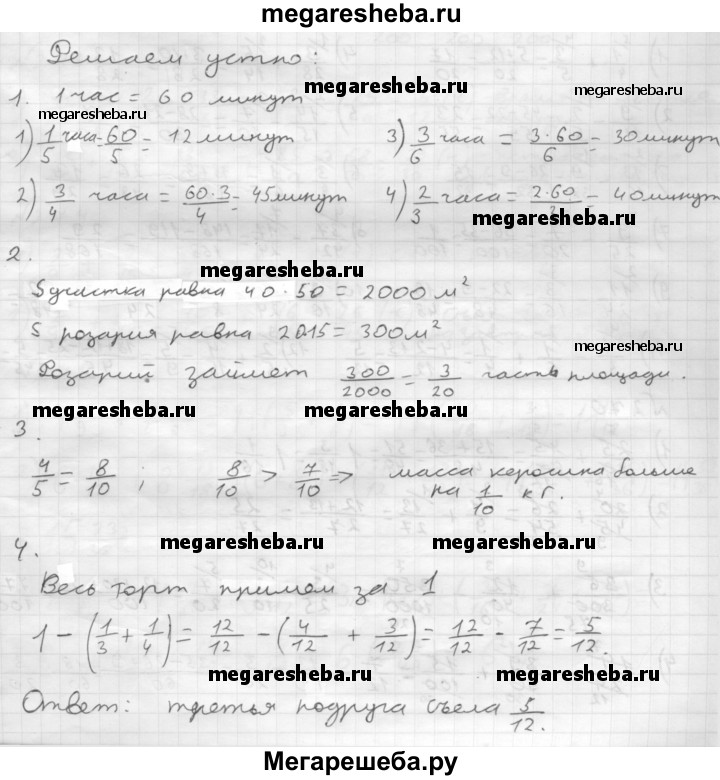 megaresheba.ru
Решаем устно:
megaresheba.ru
1. 1 час = 60 минут
megaresheba.ru
1) 1/5 часа = 60/5 = 12 минут 3) 3/6 часа = 3·60/6 = 30 минут
2) 3/4 часа = 60·3/4 = 45 минут 4) 2/3 часа = 2·60/3 = 40 минут
megaresheba.ru
2.
megaresheba.ru
S участка равна 40·50 = 2000 м²
S розария равна 20·15 = 300 м²
megaresheba.ru
Розарий займет 300/2000 = 3/20 часть площади.
megaresheba.ru megaresheba.ru
3.
4/5 = 8/10 ; 8/10 > 7/10 => масса керосина больше
на 1/10 кг.
megaresheba.ru megaresheba.ru
4.
Весь торт примем за 1
1 - (1/3 + 1/4) = 12/12 - (4/12 + 3/12) = 12/12 - 7/12 = 5/12.
megaresheba.ru megaresheba.ru
Ответ: третья подруга съела 5/12.
Мегарешеба.ру